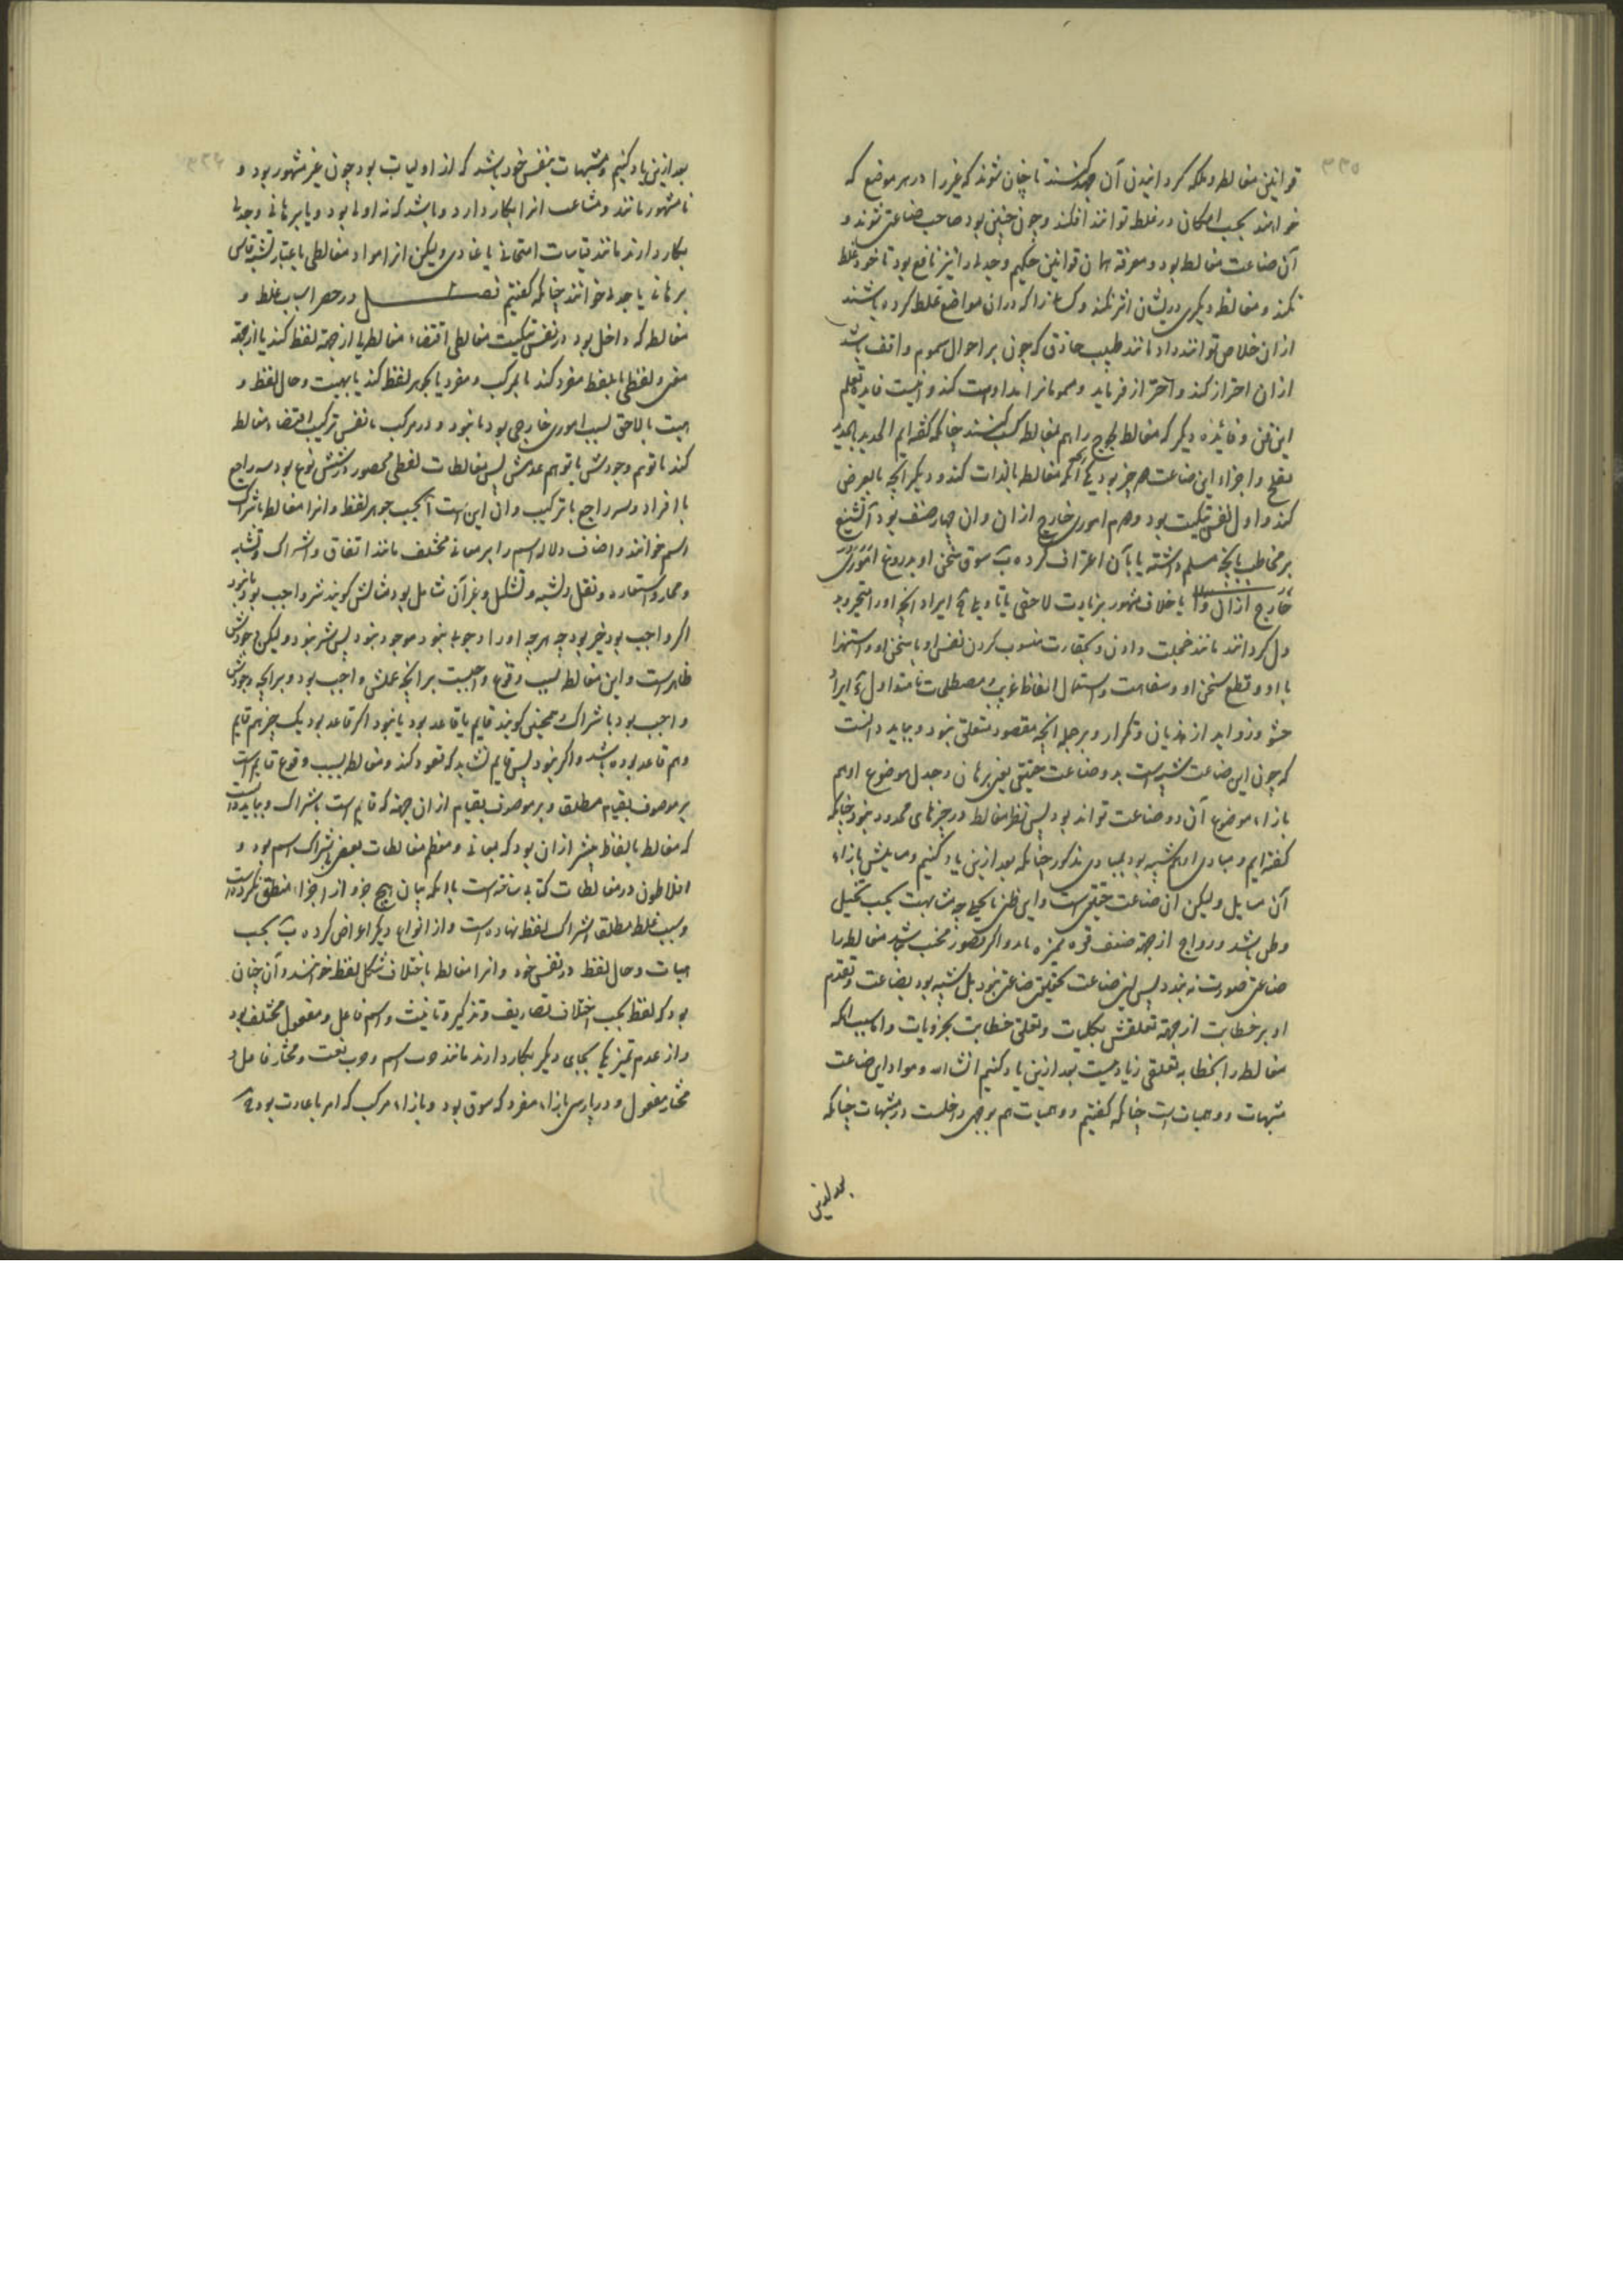 قوانین مغالطه و ملکه گردانیدن آن جهد کنند تا چنان شوند که غیر را در هر موضع که
خواهند بحسب امکان در غلط توانند افکند و چون چنین بود صاحب صناعتی شوند و
آن صناعت مغالطه بود و معرفة همان قوانین حکیم و جدلی را نیز نافع بود تا خود غلط
نکند و مغالطه دیگری در ایشان اثر نکند و کسانرا که در ان مواضع غلط کرده باشند
از ان خلاص توانند داد مانند طبیب حاذق که چون بر احوال سموم واقف باشد
از ان احتراز کند و احتراز فرماید و مسمومانرا مداوات کند و اینست فایده تعلم
این فن و فائده دیگر که مغالط لجوج را هم بمغالطه کنند چنانکه گفته‌ایم الحدید بالحدید
یفلح و اجزاء این صناعت دو چیز بود یکی آنکه مغالطه بالذات کند و دیگر آنچه بالعرض
کند و اول نفس تبکیت بود و دوم اموری خارج ازان و ان چهار صنف بود آ تشنیع
بر مخاطب بآنچه مسلم داشته یا بآن اعتراف کرده ب سوق سخن او بدروغ اموری
خارج ازان یا خلاف مشهور بزیادت لاحقی یا تاویلی ج ایراد آنچه او را متحیر و بد
دل گرداند مانند خجلت دادن و بحقارت منسوب کردن نفس او یا سخن او و استهزا
با او و قطع سخن او و سفاهت و استعمال الفاظ غریب و مصطلحات نامتداول د ایراد
حشو و زواید از هذیان و تکرار و بر جمله آنچه بمقصود متعلق نبود و بباید دانست
که چون این صناعت شبیه است بدو صناعت حقیقی یعنی برهان و جدل موضوع او هم
بازاء موضوع آن دو صناعت تواند بود پس نظر مغالط در چیزهای محدود نبود چنانکه
گفته‌ایم و مبادی او هم شبیه بود بمبادی مذکور چنانکه بعد ازین یاد کنیم و مسایلش بازاء
آن مسایل ولیکن ان صناعت حقیقی است و این ظنی بحسب تخیل
و ظن باشد و رواج از جهة ضعف قوه ممیزه
صناعتی صورت نه بندد پس این صناعت بحقیقت صناعتی نبود بل شبیه بود بصناعت و تقدم
او بر خطابت از جهة تعلقش بکلیات و تعلق خطابت بجزویات و اما سبب آنکه
مغالطه را بخطابه تعلقی زیادت نیست بعد ازین یاد کنیم انشاء الله و مواد این صناعت
مشبهات و وهمیات است چنانکه گفتیم و وهمیات هم بوجهی داخلست در مشبهات چنانکه
بعد ازین
بعد ازین یاد کنیم و مشبهات بنفس خود باشد که از اولیات بود چون غیر مشهور بود و
نا مشهور مانند و مشاغب انرا بکار دارد و باشد که نه اولی بود و یا برهانی و جدلی
بکار دارند مانند قیاسات امتحانی یا عنادی ولیکن انرا مواد مغالطی باعتبار تشبه قیاس
برهانی یا جدلی خوانند چنانکه گفتیم فصل در حصر اسباب غلط و
مغالطه که داخل بود در نفس تبکیت مغالطی اقتضاء مغالطه یا از جهة لفظ کند یا از جهة
معنی و لفظی یا بلفظ مفرد کند یا بمرکب و مفرد یا بجوهر لفظ کند یا بهیئت و حال لفظ و
هیئت یا لاحق بسبب اموری خارجی بود یا نبود و در مرکب یا نفس ترکیب اقتضاء مغالطه
کند یا توهم وجودش یا توهم عدمش پس مغالطات لفظی محصور در شش نوع بود سه راجع
با افراد و سه راجع با ترکیب و ان این است آ بحسب جوهر لفظ و انرا مغالطه باشتراک
اسم خوانند و اصناف دلالة اسم را بر معانی مختلف مانند اتفاق و اشتراک و تشابه
و مجاز و استعاره و نقل و تشبیه و تشکیل و غیر آن شامل بود مثالش گویند شر واجب بود یا نبود
اگر واجب بود خیر بود چه هرچه او را وجوب نبود موجود نبود پس شر نبود ولیکن وجودش
ظاهر است و این مغالطه بسبب وقوع واجبست بر آنچه عملش واجب بود و بر آنچه وجودش
واجب بود باشتراک و همچنین گویند قایم یا قاعد بود یا نبود اگر قاعد بود یک چیز هم قایم
و هم قاعد بوده باشد و اگر نبود پس قایم نشاید که قعود کند و مغالطه بسبب وقوع قایم است
بر موصوف بقیام مطلق و بر موصوف بقیام از ان جهة که قایم است باشتراک و بباید دانست
که مغالطه بالفاظ بیشتر ازان بود که بمعانی و معظم مغالطات لفظی باشتراک اسم بود و
افلاطون در مغالطات کتابی ساخته است با آنکه بیان هیچ جزو از اجزاء منطق نکرده است
و سبب غلط مطلق اشتراک لفظ نهاده است و از انواع دیگر اعراض کرده ب بحسب
هیات و حال لفظ در نفس خود و انرا مغالطه باختلاف شکل لفظ خوانند و آن چنان
بود که لفظ بحسب اختلاف تصاریف و تذکیر و تانیث و اسم فاعل و مفعول مختلف بود
و از عدم تمییز یکی بجای دیگر بکار دارند مانند اسم و نعت و مختار فاعل و
مختار مفعول و در پارسی بازاء مفرد که سوق بود و بازاء مرکب که امر باعادت بود ج